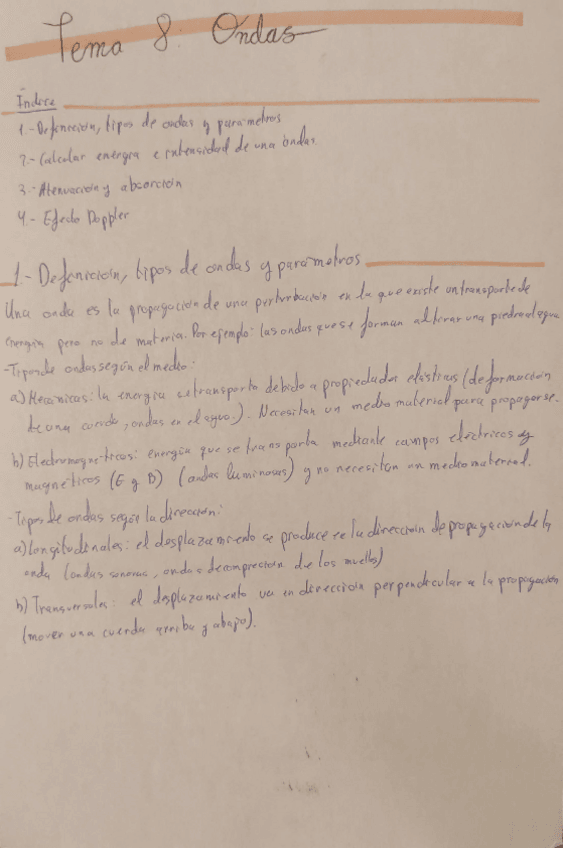 Tema 8: Ondas
Índice
1.- Definición, tipos de ondas y parámetros
2.- Calcular energía e intensidad de una ondas.
3.- Atenuación y absorción
4.- Efecto Doppler
1.- Definición, tipos de ondas y parámetros
Una onda es la propagación de una perturbación en la que existe un transporte de
energía pero no de materia. Por ejemplo: las ondas que se forman al tirar una piedra al agua
- Tipos de ondas según el medio:
a) Mecánicas: la energía se transporta debido a propiedades elásticas (deformación
de una cuerda, ondas en el agua.). Necesitan un medio material para propagarse.
b) Electromagnéticas: energía que se transporta mediante campos eléctricos y
magnéticos (E y B) (ondas luminosas) y no necesitan un medio material.
- Tipos de ondas según la dirección:
a) Longitudinales: el desplazamiento se produce en la dirección de propagación de la
onda (ondas sonoras, ondas de compresión de los muelles)
b) Transversales: el desplazamiento va en dirección perpendicular a la propagación
(mover una cuerda arriba y abajo).